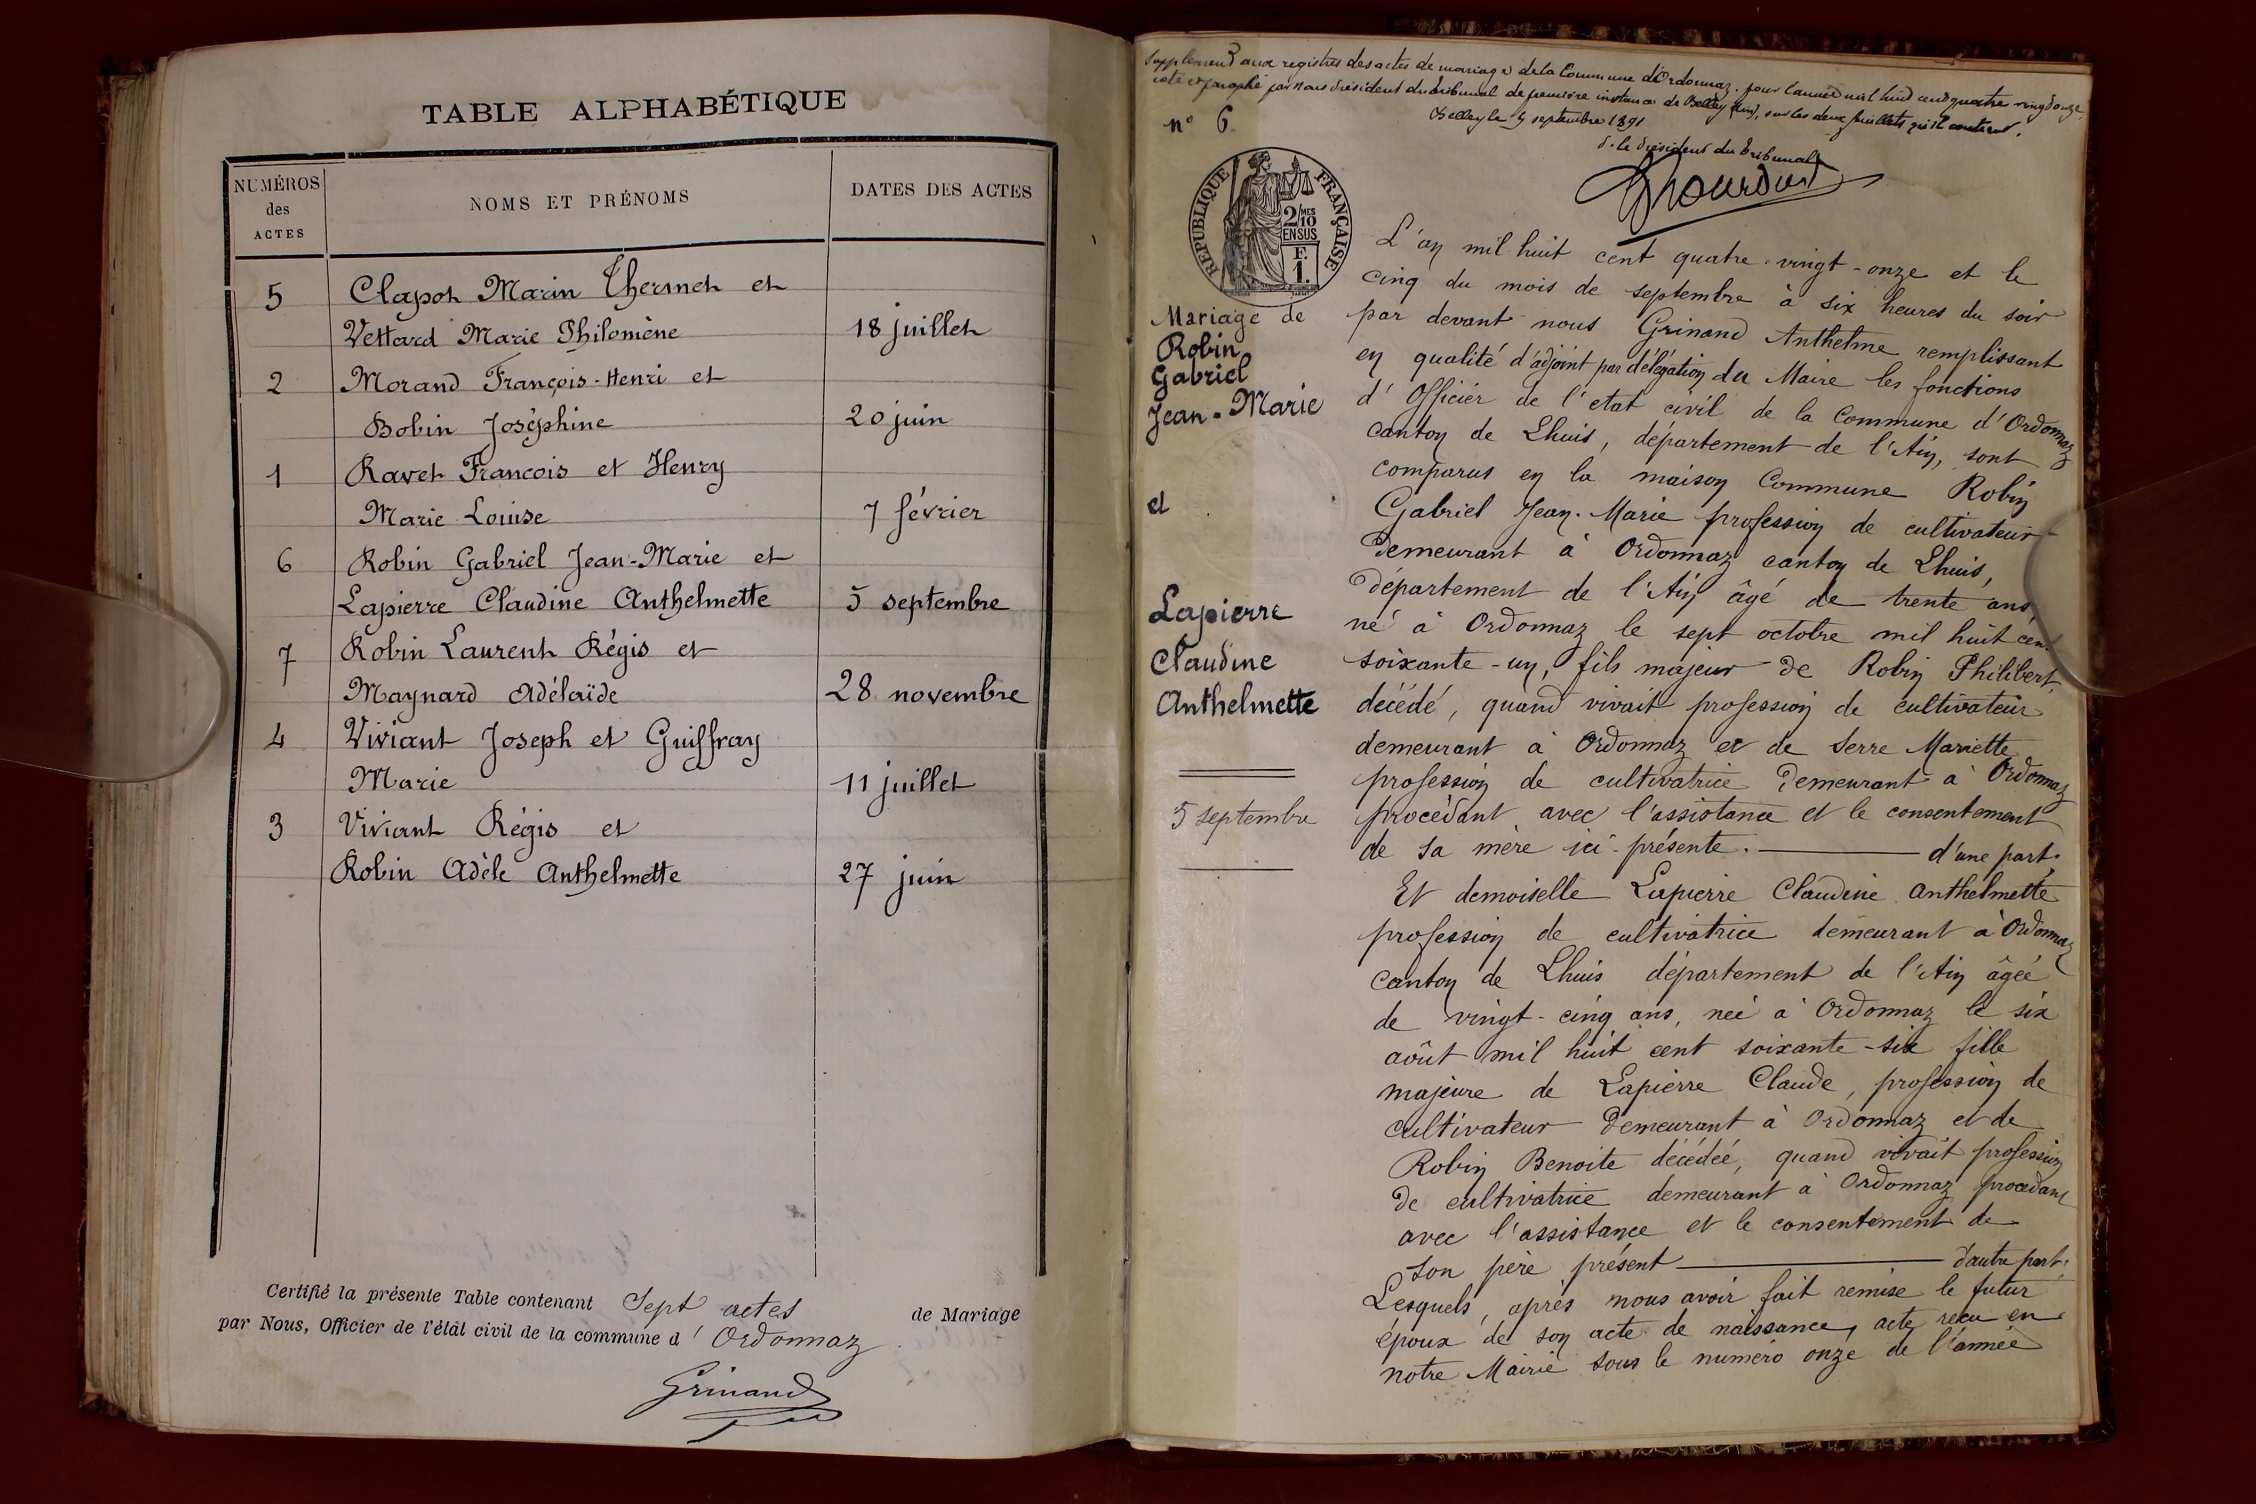 TABLE ALPHABÉTIQUE
NUMÉROS des ACTES
NOMS ET PRÉNOMS
DATES DES ACTES
5 Clapot Marin Thermet et
Vettard Marie Philomène 18 juillet
2 Morand François-Henri et
Bobin Joséphine 20 juin
1 Ravet Francois et Henry
Marie Louise 7 février
6 Robin Gabriel Jean-Marie et
Lapierre Claudine Anthelmette 5 septembre
7 Robin Laurent Régis et
Maynard Adélaïde 28 novembre
4 Viviant Joseph et Guiffray
Marie 11 juillet
3 Viviant Régis et
Robin Adèle Anthelmette 27 juin
Certifié la présente Table contenant Sept actes de Mariage
par Nous, Officier de l'état civil de la commune d'Ordonnaz
Grinand
Supplement aux registres des actes de mariage de la Commune d'Ordonnaz, pour l'année mil huit cent quatre vingt onze,
coté et paraphé par nous président du tribunal de première instance de Belley (Ain), sur les deux feuillets qu'il contient.
Belley le 5 septembre 1891
P. le président du tribunal
n° 6
RÉPUBLIQUE FRANÇAISE
2/10 MES
EN SUS
F.
1.
Mariage de
Robin
Gabriel
Jean-Marie
et
Lapierre
Claudine
Anthelmette
5 septembre
L'an mil huit cent quatre-vingt-onze et le
cinq du mois de septembre à six heures du soir
par devant nous Grinand Anthelme remplissant
en qualité d'adjoint par délégation du Maire les fonctions
d'Officier de l'etat civil de la Commune d'Ordonnaz
canton de Lhuis, département de l'Ain, sont
comparus en la maison Commune Robin
Gabriel Jean-Marie profession de cultivateur
demeurant à Ordonnaz canton de Lhuis,
département de l'Ain âgé de trente ans
né à Ordonnaz le sept octobre mil huit cent
soixante-un, fils majeur de Robin Philibert,
décédé, quand vivait profession de cultivateur
demeurant à Ordonnaz et de Serre Mariette
profession de cultivatrice demeurant à Ordonnaz
procédant avec l'assistance et le consentement
de sa mère ici-présente. d'une part.
Et demoiselle Lapierre Claudine Anthelmette
profession de cultivatrice demeurant à Ordonnaz
canton de Lhuis département de l'Ain âgée
de vingt-cinq ans, née à Ordonnaz le six
août mil huit cent soixante-six fille
majeure de Lapierre Claude, profession de
cultivateur demeurant à Ordonnaz et de
Robin Benoite décédée, quand vivait profession
de cultivatrice demeurant à Ordonnaz procédant
avec l'assistance et le consentement de
son père présent d'autre part.
Lesquels, après nous avoir fait remise le futur
époux de son acte de naissance, acte recu en
notre Mairie sous le numero onze de l'année